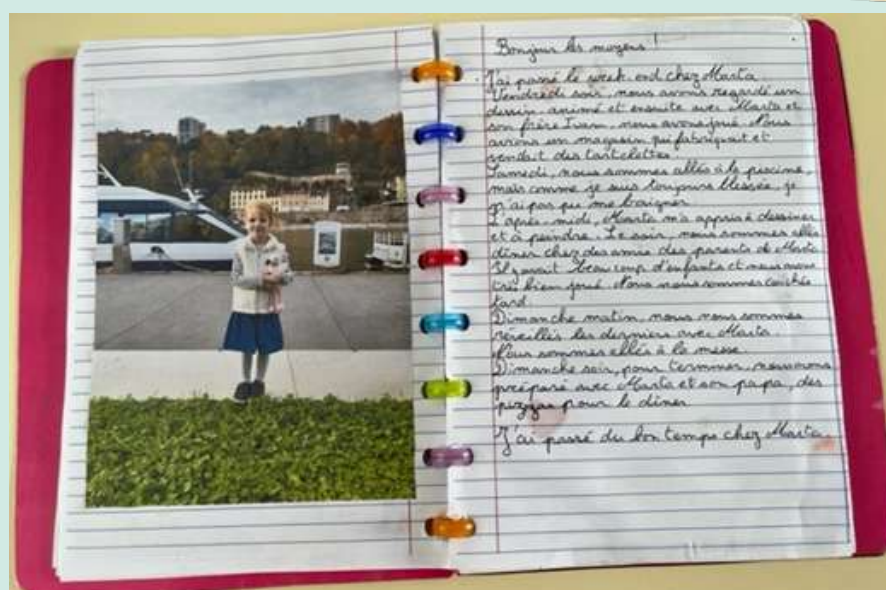 Bonjour les moyens !
J'ai passé le week-end chez Marta.
Vendredi soir, nous avons regardé un
dessin animé et ensuite avec Marta et
son frère Ivan, nous avons joué. Nous
avions un magasin qui fabriquait et
vendait des tartelettes.
Samedi, nous sommes allés à la piscine,
mais comme je suis toujours blessée, je
n'ai pas pu me baigner.
L'après-midi, Marta m'a appris à dessiner
et à peindre. Le soir, nous sommes allés
dîner chez des amis des parents de Marta.
Il y avait beaucoup d'enfants et nous avons
très bien joué. Nous nous sommes couchés
tard.
Dimanche matin, nous nous sommes
réveillés les derniers avec Marta.
Nous sommes allés à la messe.
Dimanche soir, pour terminer, nous avons
préparé avec Marta et son papa, des
pizzas pour le dîner.
J'ai passé du bon temps chez Marta.